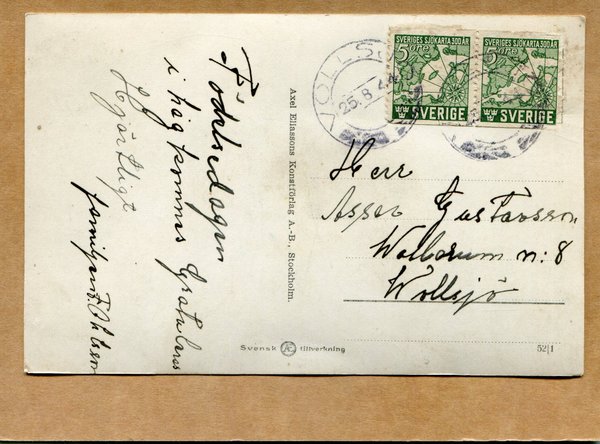 Födelsedagen
i hågkommes Gratuleras
Hjärtligt
familjen
Axel Eliassons Konstförlag A.-B., Stockholm.
VOLLSJÖ
25.8.44
SVERIGES SJÖKARTA 300 ÅR
5 öre
SVERIGE
SVERIGES SJÖKARTA 300 ÅR
5 öre
SVERIGE
Herr
Assar Gustavsson
Wollerum n:8
Wollsjö
Svensk Æ tillverkning
52/1